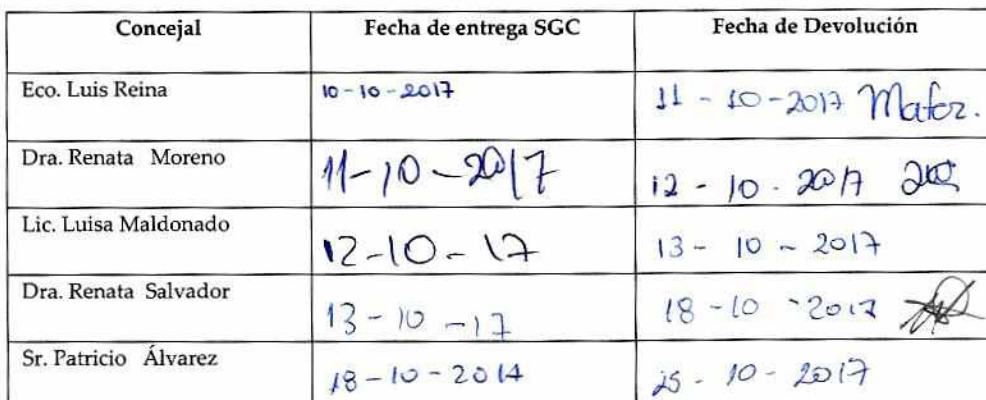 Concejal Fecha de entrega SGC Fecha de Devolución
Eco. Luis Reina 10-10-2017 11-10-2017
Dra. Renata Moreno 11-10-2017 12-10-2017
Lic. Luisa Maldonado 12-10-17 13-10-2017
Dra. Renata Salvador 13-10-17 18-10-2017
Sr. Patricio Álvarez 18-10-2017 25-10-2017